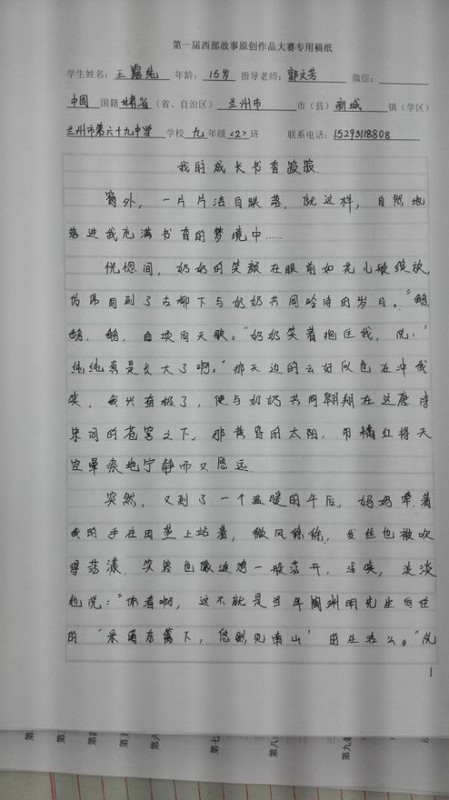 第一届西部故事原创作品大赛专用稿纸
学生姓名：王嘉纯 年龄：15岁 指导老师：郭文芳 微信：
中国 国籍 甘肃省（省、自治区） 兰州市 市（县） 新城 镇（学区）
兰州市第六十九中学 学校 九 年级 <2> 班 联系电话：15293118808
我的成长书香
窗外，一片片洁白 落，就这样，自然地
落进我充满书香的梦境中……
恍惚间，奶奶的笑颜在眼前如花儿破绽放，
仿佛回到了古 下与奶奶共同吟诗的岁月。“鹅，
鹅，鹅，曲项向天歌。”奶奶笑着抱住我，说：“
纯纯真是长大了啊。”那天边的云好似也在冲我
笑，我兴奋极了，便与奶奶共同翱翔在这唐诗
宋词的苍穹之下，那 的太阳，用橘红将天
空晕染地宁静而又悠远
突然，又到了一个温暖的午后，妈妈牵着
我的手在田 上站着，微风徐徐，发丝也被吹
得荡漾，笑容也像涟漪一般荡开， ，淡淡
地说：“你看啊，这不就是当年陶渊明先生向往
的‘采菊东篱下，悠然见南山’的生活么。”说
1